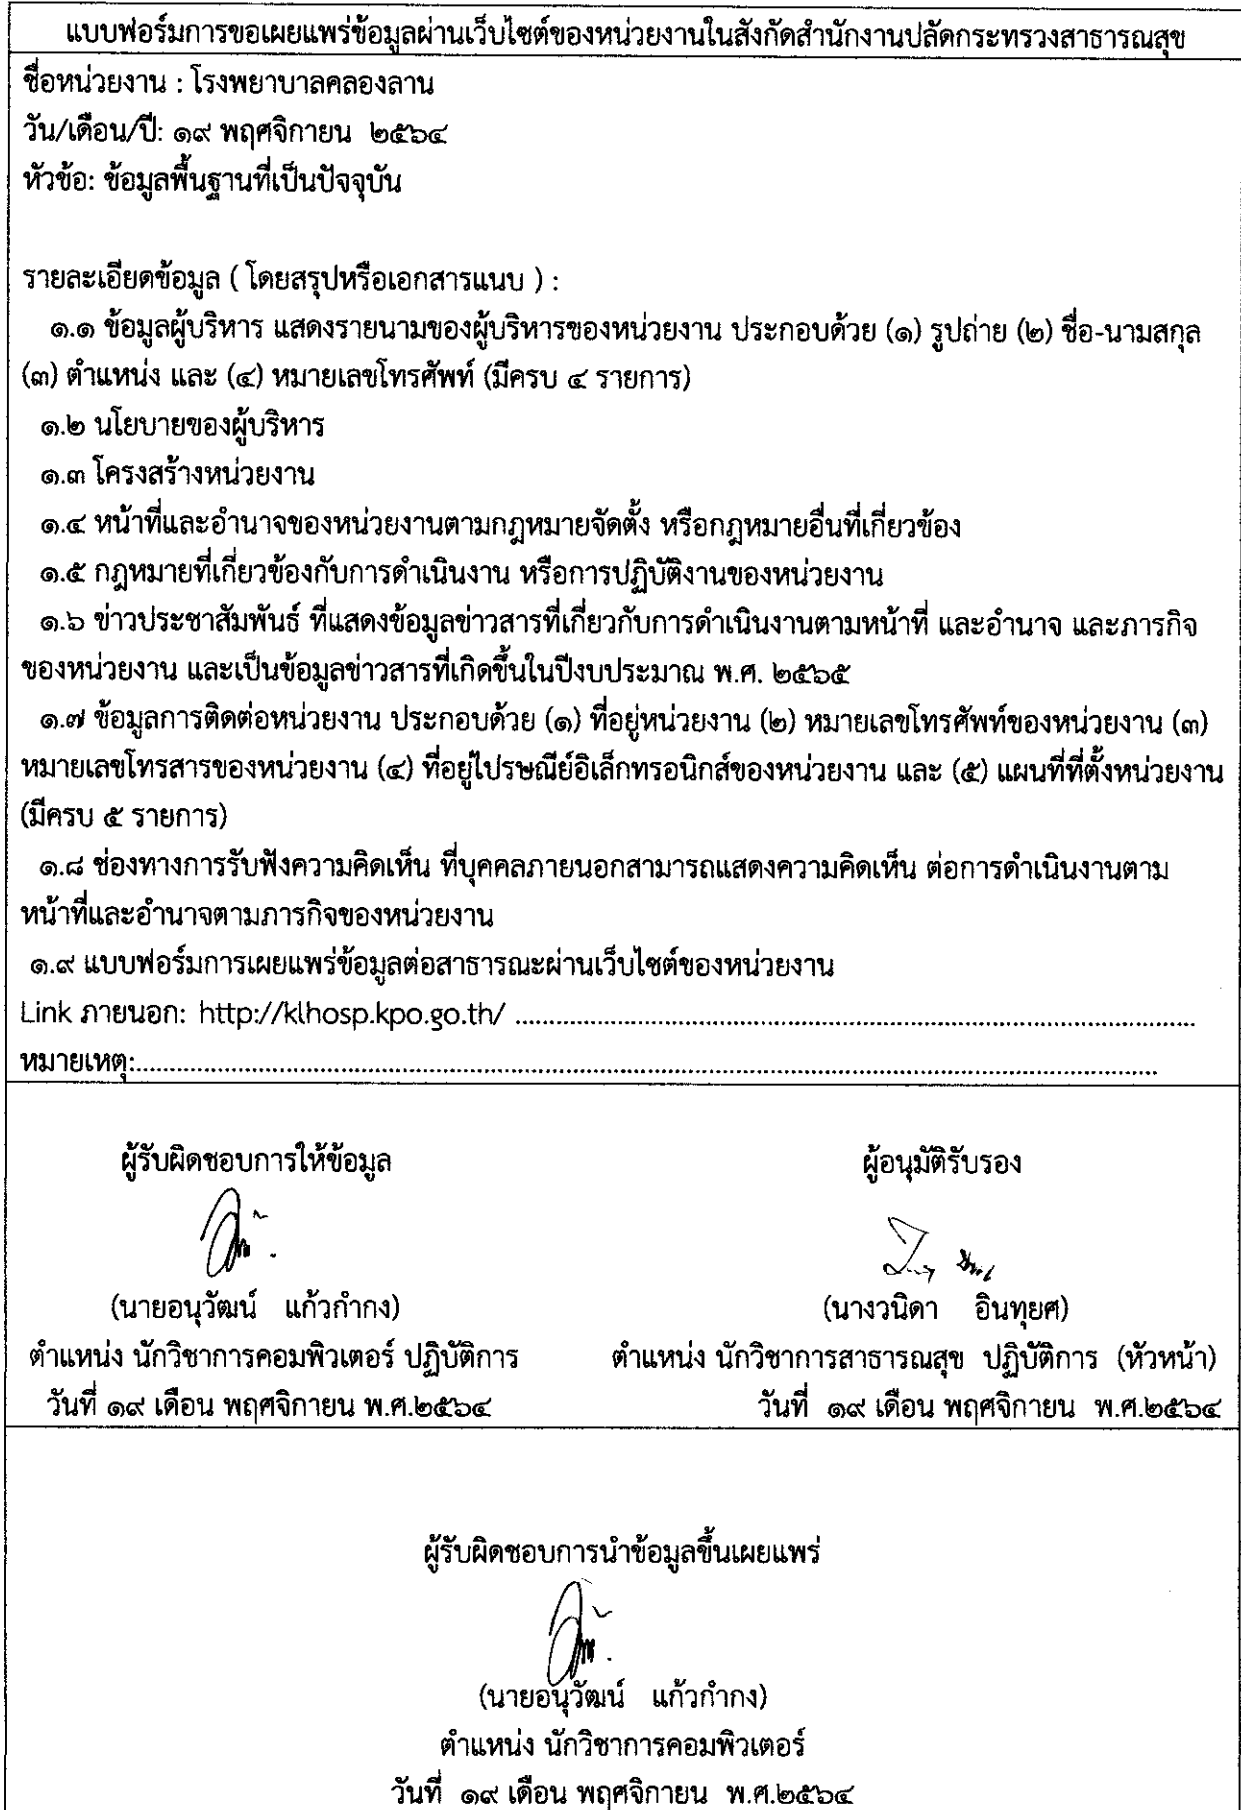 แบบฟอร์มการขอเผยแพร่ข้อมูลผ่านเว็บไซต์ของหน่วยงานในสังกัดสำนักงานปลัดกระทรวงสาธารณสุข
ชื่อหน่วยงาน : โรงพยาบาลคลองลาน
วัน/เดือน/ปี: ๑๙ พฤศจิกายน ๒๕๖๔
หัวข้อ: ข้อมูลพื้นฐานที่เป็นปัจจุบัน
รายละเอียดข้อมูล ( โดยสรุปหรือเอกสารแนบ ) :
๑.๑ ข้อมูลผู้บริหาร แสดงรายนามของผู้บริหารของหน่วยงาน ประกอบด้วย (๑) รูปถ่าย (๒) ชื่อ-นามสกุล
(๓) ตำแหน่ง และ (๔) หมายเลขโทรศัพท์ (มีครบ ๔ รายการ)
๑.๒ นโยบายของผู้บริหาร
๑.๓ โครงสร้างหน่วยงาน
๑.๔ หน้าที่และอำนาจของหน่วยงานตามกฎหมายจัดตั้ง หรือกฎหมายอื่นที่เกี่ยวข้อง
๑.๕ กฎหมายที่เกี่ยวข้องกับการดำเนินงาน หรือการปฏิบัติงานของหน่วยงาน
๑.๖ ข่าวประชาสัมพันธ์ ที่แสดงข้อมูลข่าวสารที่เกี่ยวกับการดำเนินงานตามหน้าที่ และอำนาจ และภารกิจ
ของหน่วยงาน และเป็นข้อมูลข่าวสารที่เกิดขึ้นในปีงบประมาณ พ.ศ. ๒๕๖๕
๑.๗ ข้อมูลการติดต่อหน่วยงาน ประกอบด้วย (๑) ที่อยู่หน่วยงาน (๒) หมายเลขโทรศัพท์ของหน่วยงาน (๓)
หมายเลขโทรสารของหน่วยงาน (๔) ที่อยู่ไปรษณีย์อิเล็กทรอนิกส์ของหน่วยงาน และ (๕) แผนที่ที่ตั้งหน่วยงาน
(มีครบ ๕ รายการ)
๑.๘ ช่องทางการรับฟังความคิดเห็น ที่บุคคลภายนอกสามารถแสดงความคิดเห็น ต่อการดำเนินงานตาม
หน้าที่และอำนาจตามภารกิจของหน่วยงาน
๑.๙ แบบฟอร์มการเผยแพร่ข้อมูลต่อสาธารณะผ่านเว็บไซต์ของหน่วยงาน
Link ภายนอก: http://klhosp.kpo.go.th/ ..........................................................................................
หมายเหตุ:..........................................................................................................................
ผู้รับผิดชอบการให้ข้อมูล
(นายอนุวัฒน์ แก้วกำกง)
ตำแหน่ง นักวิชาการคอมพิวเตอร์ ปฏิบัติการ
วันที่ ๑๙ เดือน พฤศจิกายน พ.ศ.๒๕๖๔
ผู้อนุมัติรับรอง
(นางวนิดา อินทุยศ)
ตำแหน่ง นักวิชาการสาธารณสุข ปฏิบัติการ (หัวหน้า)
วันที่ ๑๙ เดือน พฤศจิกายน พ.ศ.๒๕๖๔
ผู้รับผิดชอบการนำข้อมูลขึ้นเผยแพร่
(นายอนุวัฒน์ แก้วกำกง)
ตำแหน่ง นักวิชาการคอมพิวเตอร์
วันที่ ๑๙ เดือน พฤศจิกายน พ.ศ.๒๕๖๔